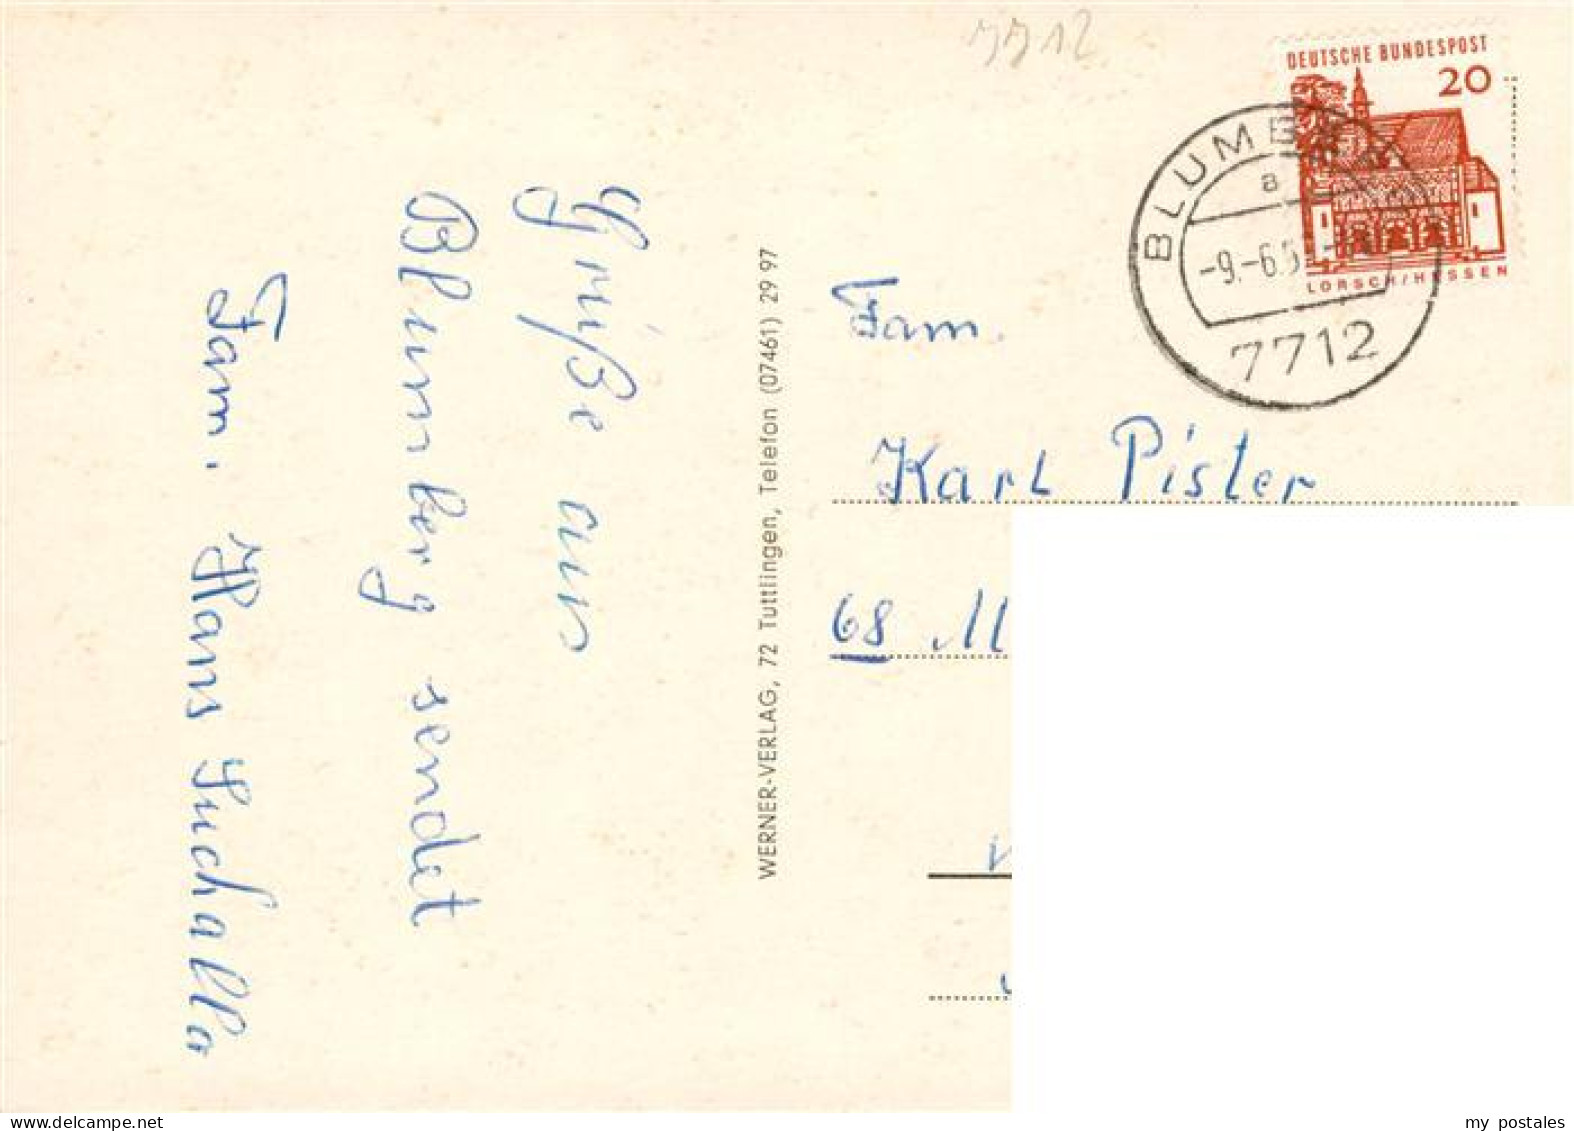 7712
DEUTSCHE BUNDESPOST
20
LORSCH/HESSEN
BLUMBERG
a
-9.-6.
7712
Grüße aus
Blumberg sendet
Fam. Hans Suchalla
WERNER-VERLAG, 72 Tuttlingen, Telefon (07461) 29 97
Fam.
Karl Pister
68 M
my postales